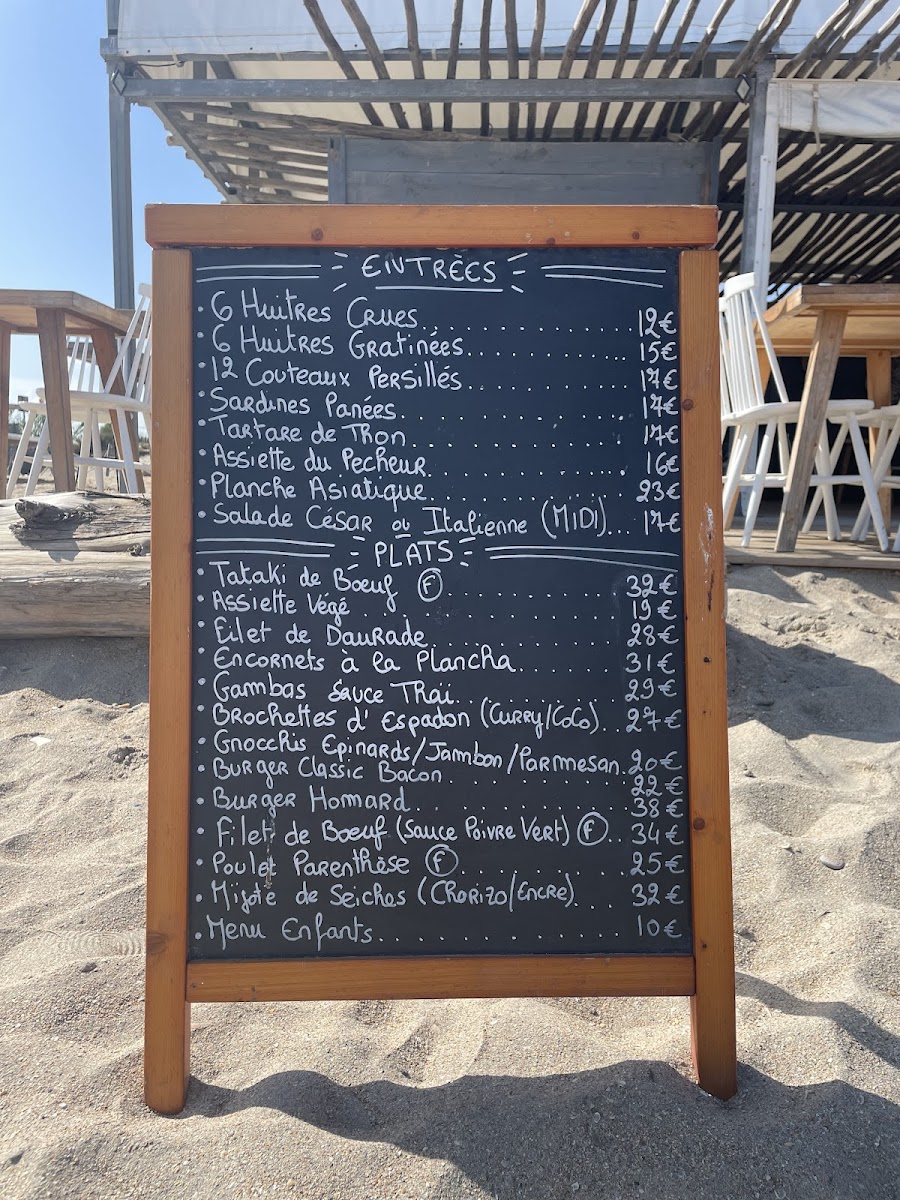 ENTRÈES
• 6 Huitres Crues.................. 12€
• 6 Huitres Gratinées.............. 15€
• 12 Couteaux Persillés............ 17€
• Sardines Panées.................. 17€
• Tartare de Thon.................. 17€
• Assiette du Pecheur.............. 16€
• Planche Asiatique................ 23€
• Salade César ou Italienne (MIDI)... 17€
PLATS
• Tataki de Boeuf Ⓕ ............... 32€
• Assiette Végé ................... 19€
• Filet de Daurade................. 28€
• Encornets à la Plancha........... 31€
• Gambas Sauce Thai................ 29€
• Brochettes d'Espadon (Curry/Coco)... 27€
• Gnocchis Epinards/Jambon/Parmesan. 20€
• Burger Classic Bacon............. 22€
• Burger Homard.................... 38€
• Filet de Boeuf (Sauce Poivre Vert) Ⓕ.. 34€
• Poulet Parenthèse Ⓕ............. 25€
• Mijoté de Seiches (Chorizo/Encre)... 32€
• Menu Enfants..................... 10€